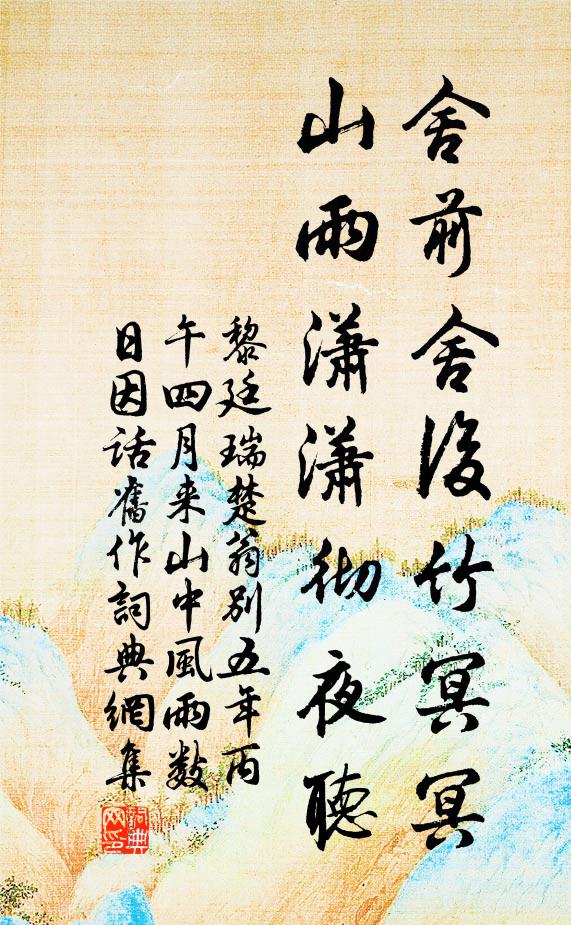 舍前舍後竹冥冥
山雨瀟瀟彻夜聽
黎廷瑞楚翁别五年丙
午四月来山中風雨数
日因话舊作詞典網集
詞典
网印